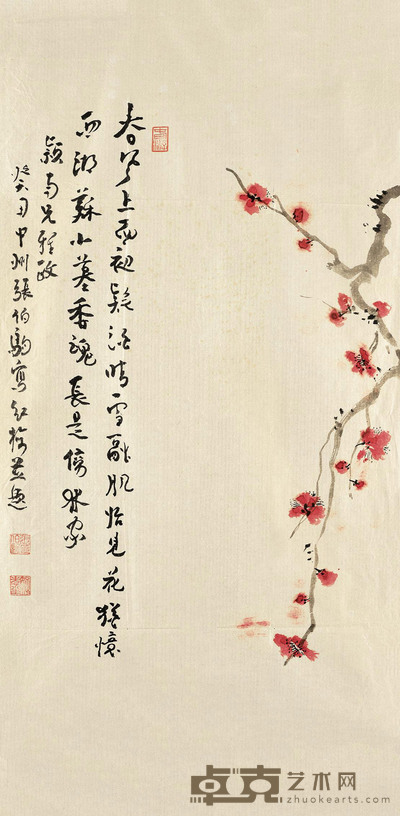 春上面初疑酒晴雪融肌恰見花猶憶
西湖蘇小墓香魂長是傍林家
穎南兄雅政
癸丑中州張伯駒寫紅梅並題
卓克艺术网
zhuokearts.com